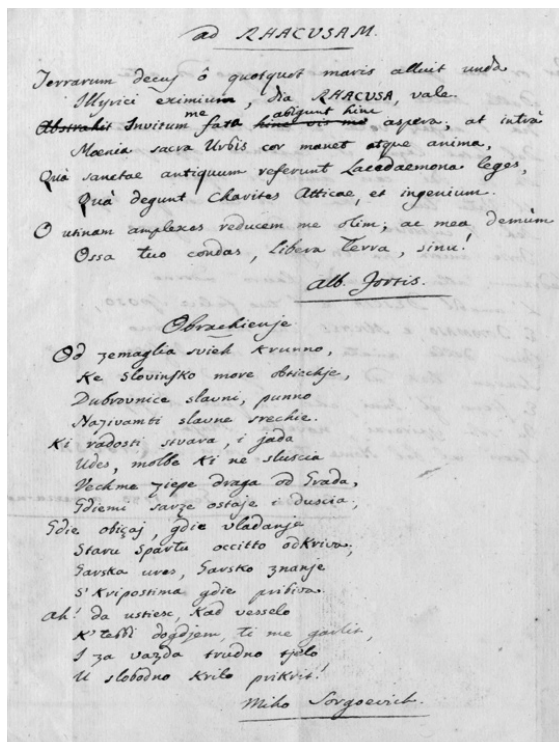 ad RHACUSAM.
Terrarum decus ô quotquot maris alluit unda
Illyrici eximium, dia RHACUSA, vale.
me abigunt hinc
Abstrahit Invitum fata hinc vis me aspera; at intrà
Moenia sacra Urbis cor manet atque anima,
Quà sanctae antiquum referunt Lacedaemona leges,
Quà degunt Charites Atticae, et ingenium.
O utinam amplexes reducem me olim; ac mea demùm
Ossa tuo condas, libera Terra, sinu!
Alb. Fortis.
Obrachienje
Od zemaglia svieh krunno,
Ke Slovinsko more obtiechje,
Dubrovnice slavni, punno
Nazivamti slavne srechie.
Ki radosti stvara, i jada
Udes, molbe ki ne sluscia
Vechme ziepe draga od Grada,
Gdiemi sarze ostaje i duscia;
Gdie obiçaj, gdie vladanja
Staru Spartu occitto odkriva;
Garska ures, Garsko znanje
S' kripostima gdie pribiva.
Ah! da ustiesc, kad vesselo
K' tebbi dogdjem, ti me garlit,
I za vazda trudno tjelo
U slobodno krilo prikrit!
Miho Sorgoevich.